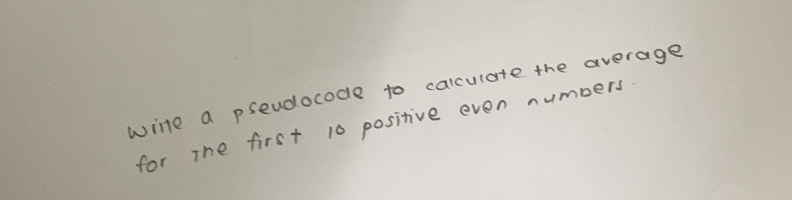 Write a pseudocode to calculate the average
for The first 10 positive even numbers.